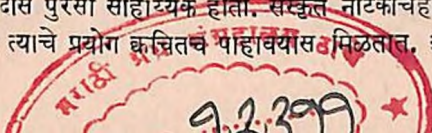 दास पुरसा साहाय्यक होता. संस्कृत नाटकाचेह
त्याचे प्रयोग क्वचितच पाहावयास मिळतात.
मराठी ग्रंथ संग्रहालय